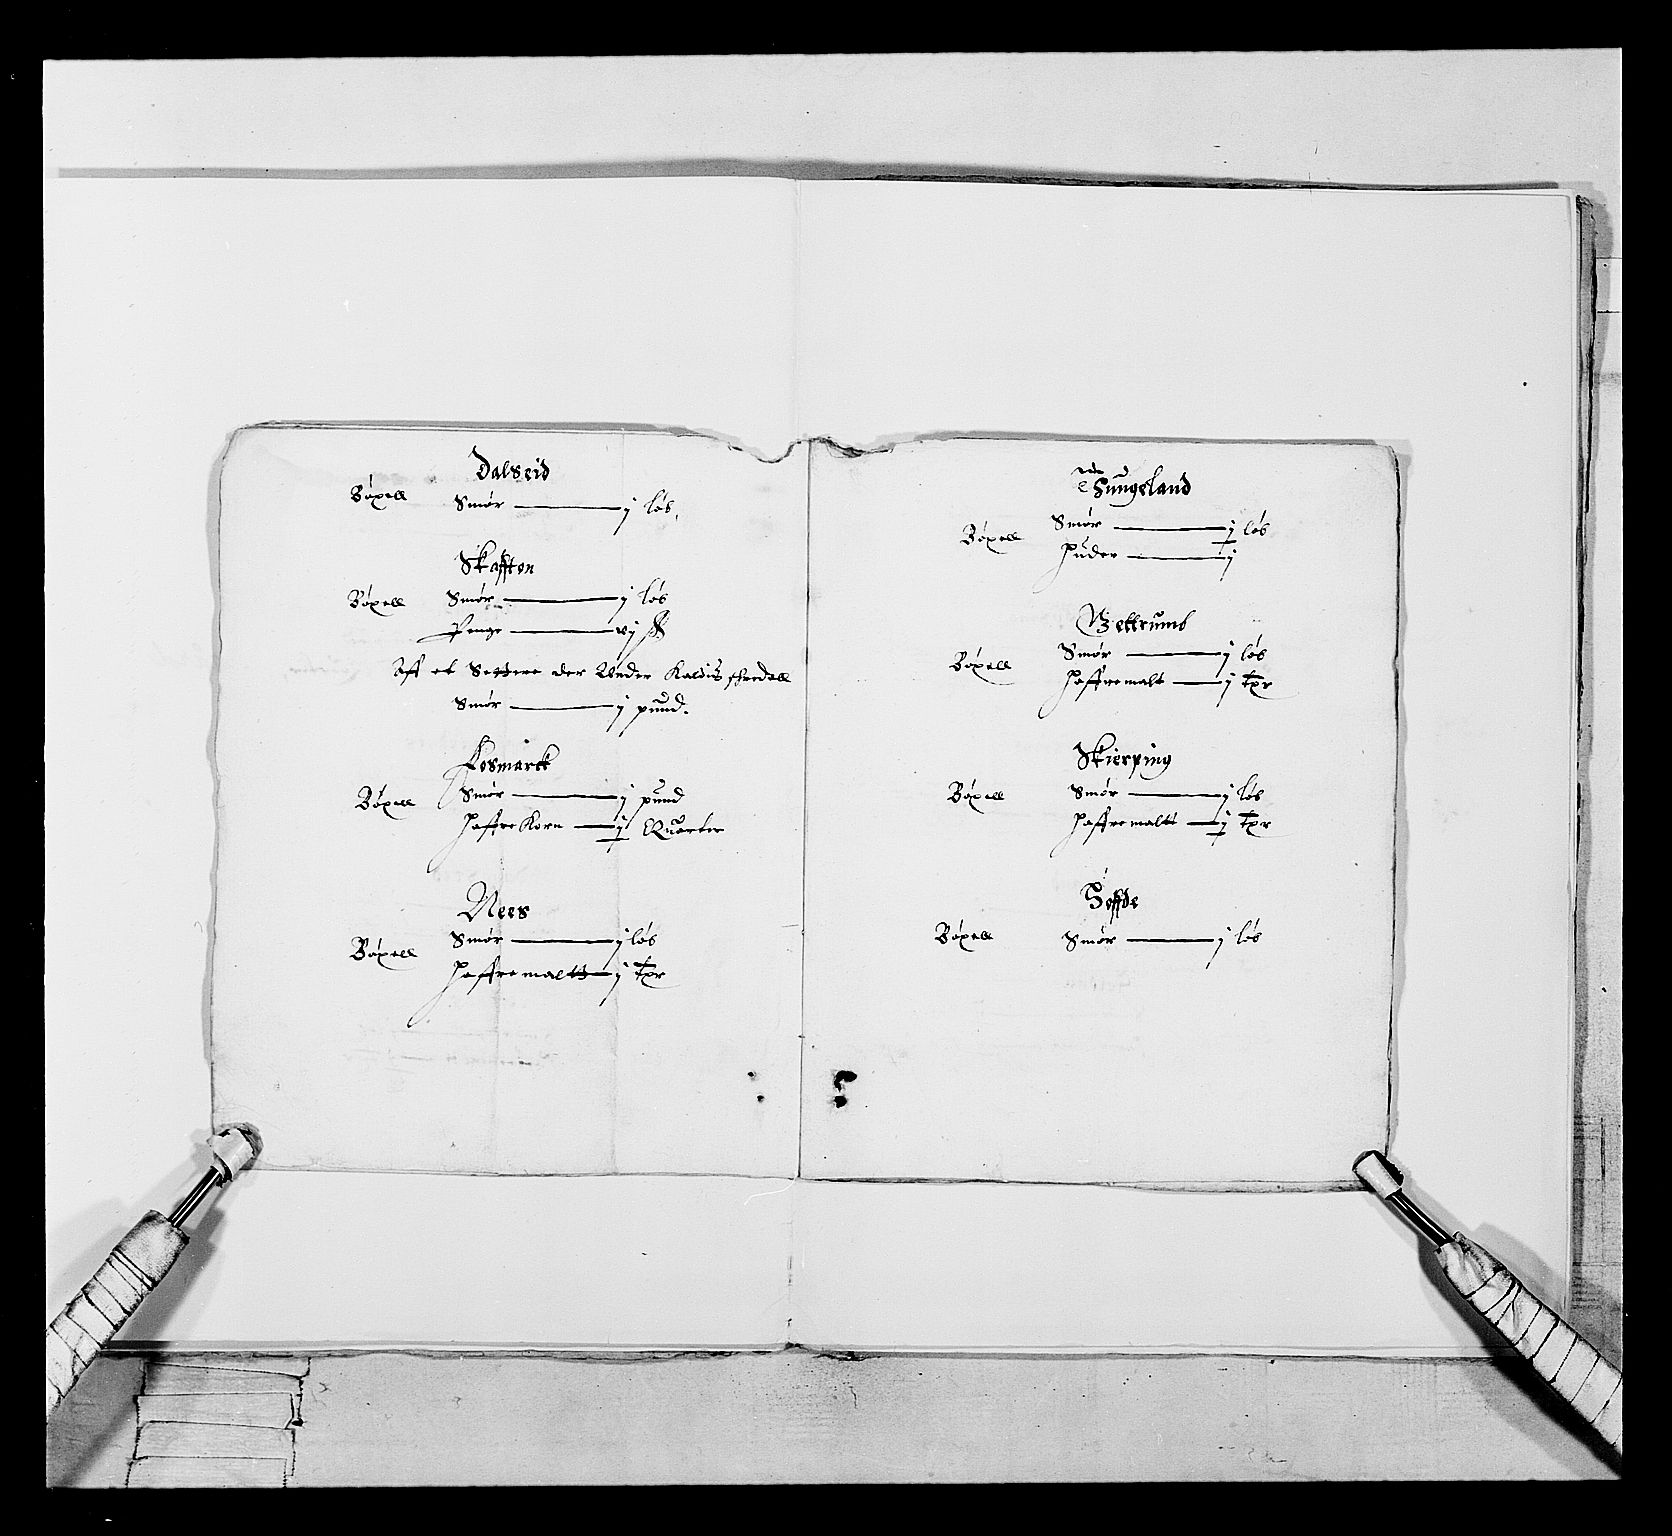 Dalseid
Bøxell Smør — j løb,
Skafften
Bøxell Smør — j løb
Penge — vj ß
Aff et Settere der Under Kaldis
Smør — j pund.
Fosmarck
Bøxell Smør — j pund
Haffre Korn — j Quarter
Nees
Bøxell Smør — j løb
Haffre maltt — j Tpr
Hungeland
Bøxell Smør — j løb
Huder — j
Vettrums
Bøxell Smør — j løb
Haffremalt — j Tpr
Skierping
Bøxell Smør — j løb
Haffre maltt — j Tpr
Høffde
Bøxell Smør — j løb